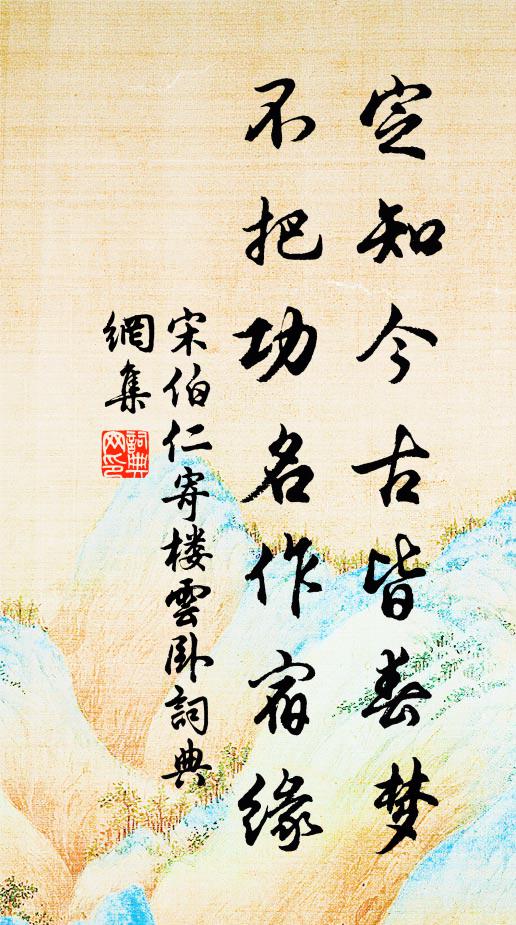 定知今古皆春梦
不把功名作宿缘
宋伯仁寄楼雲卧詞典
網集
詞典网印